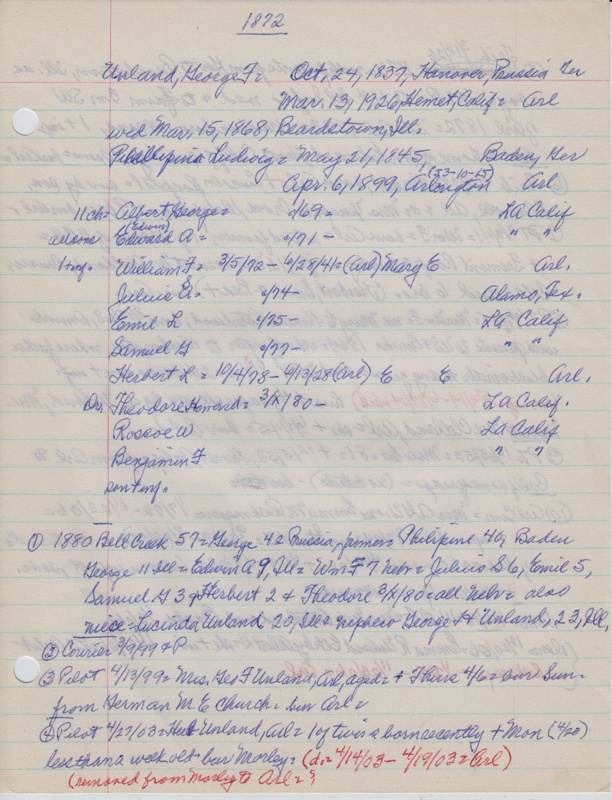 1872
Unland, George F = Oct. 24, 1837, Hanover, Prussia Ger
Mar. 13, 1926, Hemet, Calif = Arl
wed Mar. 15, 1868, Beardstown, Ill.
Phillipina Ludwig = May 21, 1845, Baden, Ger
Apr. 6, 1899, Arlington (53-10-15) Arl
11 ch = Albert George = c/69 = LA Calif
all sons (Edwin) Edward A = c/71 - " "
1 + inf. William F = 3/5/72 - 6/28/41 = (Arl) Mary E Arl.
Julius S. = c/74 - Alamo, Tex.
Emil L c/75 - LA Calif
Samuel G c/77 - " "
Herbert L = 10/4/78 - 6/13/28 (Arl) E E Arl.
Dr. Theodore Howard = 3/X/80 - LA Calif.
Roscoe W LA Calif
Benjamin F " "
son + inf.
① 1880 Bell Creek 57 = George 42 Prussia, farmer = Philipine 40, Baden
George 11 Ill = Edwin A 9, Ill = Wm F 7 Nebr = Julius S 6, Emil 5,
Samuel G 3 + Herbert 2 + Theodore 3/X/80 = all Nebr = also
niece = Lucinda Unland 20, Ill + nephew George H Unland, 23, Ill,
② Courier 3/9/99 + P
③ Pilot 4/13/99 = Mrs. Geo F Unland, Arl, aged = + Thurs 4/6 = our Sun =
from German M E Church = bur Arl =
④ Pilot 4/27/03 = Herb Unland, Arl = 1 of twins born recently + Mon (4/20)
less than a week old bur Morley = (d. = 4/14/03 - 4/19/03 = Arl)
(removed from Morley to Arl = ?